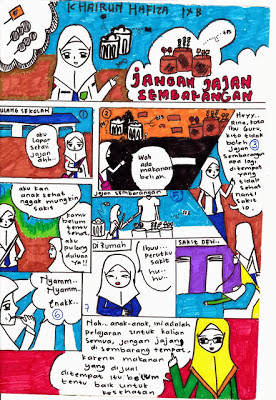 KHAIRUN HAFIZA IXB
JANGAN JAJAN
SEMBARANGAN
PULANG SEKOLAH
1
aku
lapar
sekali
jajan
ahh..
2
Wah
ada
makanan
belilah
Heyy..
kata
Ibu Guru,
kita tidak
boleh
jajan 3
Sembarangan
apa lagi
ditempat
yang
tidak
sehat
aku kan
anak sehat
nggak mungkin
sakit
kamu
belum
tentu
sehat
aku
pulang
duluan
ya!!
jajan sembarangan
Nyamm..
Nyamm..
Enakk..
6
Di Rumah
Ibuu..
Perutku
sakit
hu..
hu..
7
SAKIT DEH..
Nah.. anak-anak, ini adalah
pelajaran untuk kalian
semua, jangan jajang
di sembarang tempat,
karena makanan
yang dijual
ditempat itu belum
tentu baik untuk
kesehatan